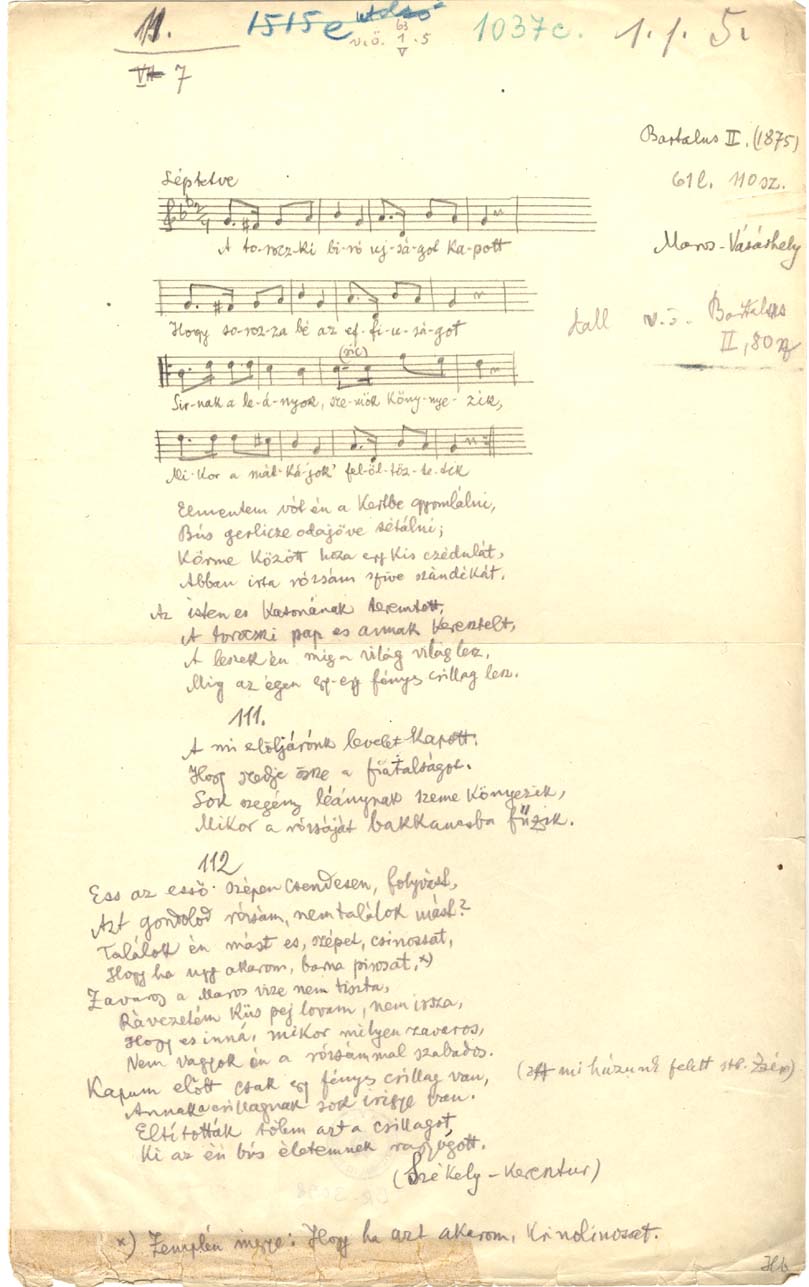 11. 1515e utolsó 1037c. 1. 1. 5.
v.ö. 63 1.5
V
VII 7
Bartalus II. (1875)
61 l. 110 sz.
Léptetve
A to-rocz-ki bi-ró uj-sá-gol ka-pott
Maros-Vásárhely
Hogy so-roz-za bé az ef-fi-u-sá-got
dall v.ö. Bartalus
II, 80
(sic)
Sir-nak a le-á-nyok, sze-mök köny-nye-zik,
Mi-kor a mát-ká-jok' fel-öl-töz-te-tik
Elmentem vót én a kertbe gyomlálni,
Bús gerlicze odajöve sétálni;
Körme között hoza egy kis czédulát,
Abban irta rózsám szive szándékát.
Az isten es katonának teremtött,
A toroczki pap es annak keresztelt,
A leszek én mig a világ világ lesz,
Mig az égen egy-egy fényes csillag lesz.
111.
A mi elöljárónk levelet kapott,
Hogy szedje össze a fiatalságot.
Sok szegény léánynak szeme könyezik,
Mikor a rózsáját bakkancsba fűzik.
112
Ess az esső szépen csendesen, folyvást,
Azt gondolod rózsám, nem találok mást?
Találok én mást es, szépet, csinossat,
Hogy ha ugy akarom, barna pirosat,*)
Zavaros a Maros vize nem tiszta,
Rávezetém kis pej lovam, nem issza,
Hogy es inná, mikor mélyen zavaros,
Nem vagyok én a rózsámmal szabados.
Kapum előtt csak egy fényes csillag van,
(a mi házunk felett stb. Zsém)
Annak a csillagnak sok irigye van.
Eltították tőlem azt a csillagot,
Ki az én bús életemnek ragyogott.
(Székely-Keresztur)
*) Zemplén megye: Hogy ha azt akarom, krinolinosat.